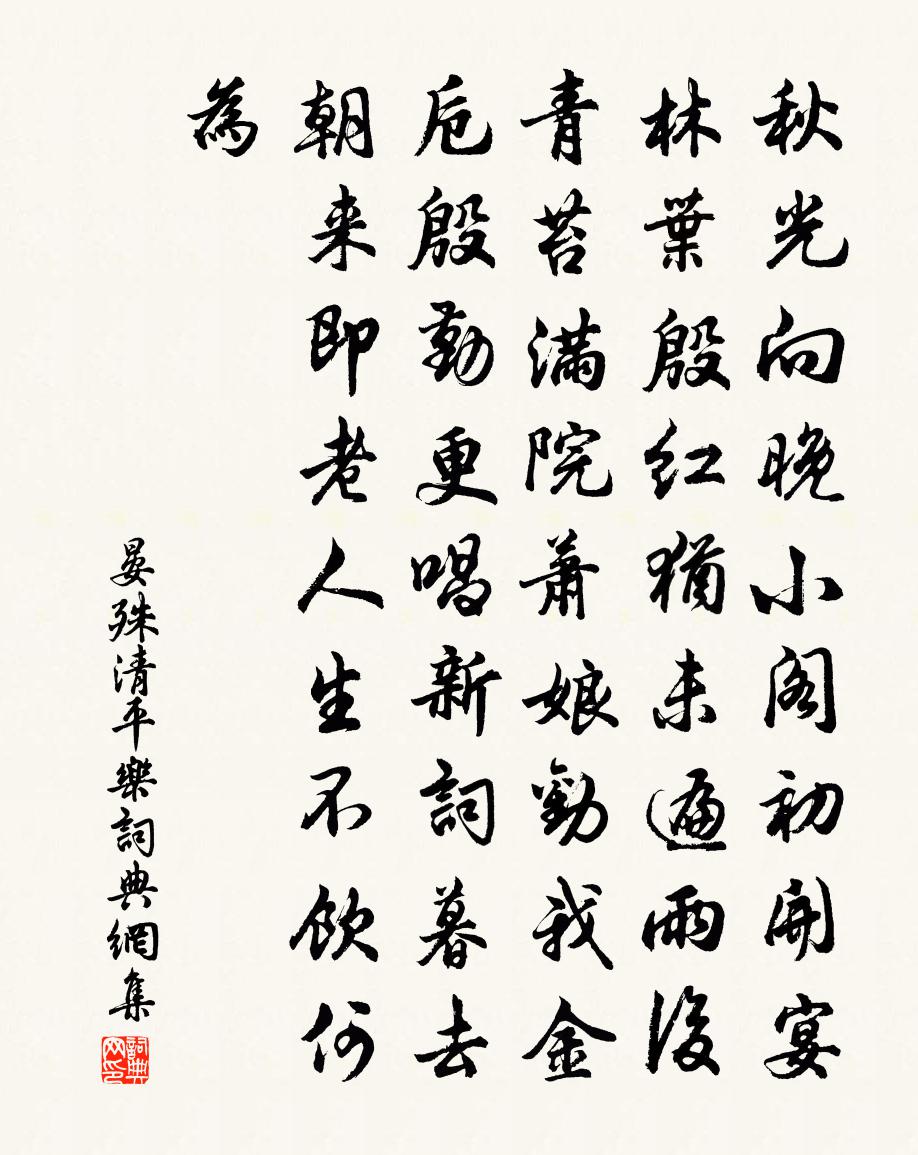 秋光向晚小閣初開宴
林葉殷紅猶未遍雨後
青苔滿院蕭娘勸我金
卮殷勤更唱新詞暮去
朝来即老人生不飲何
為
晏殊清平樂詞典網集
詞典
网印